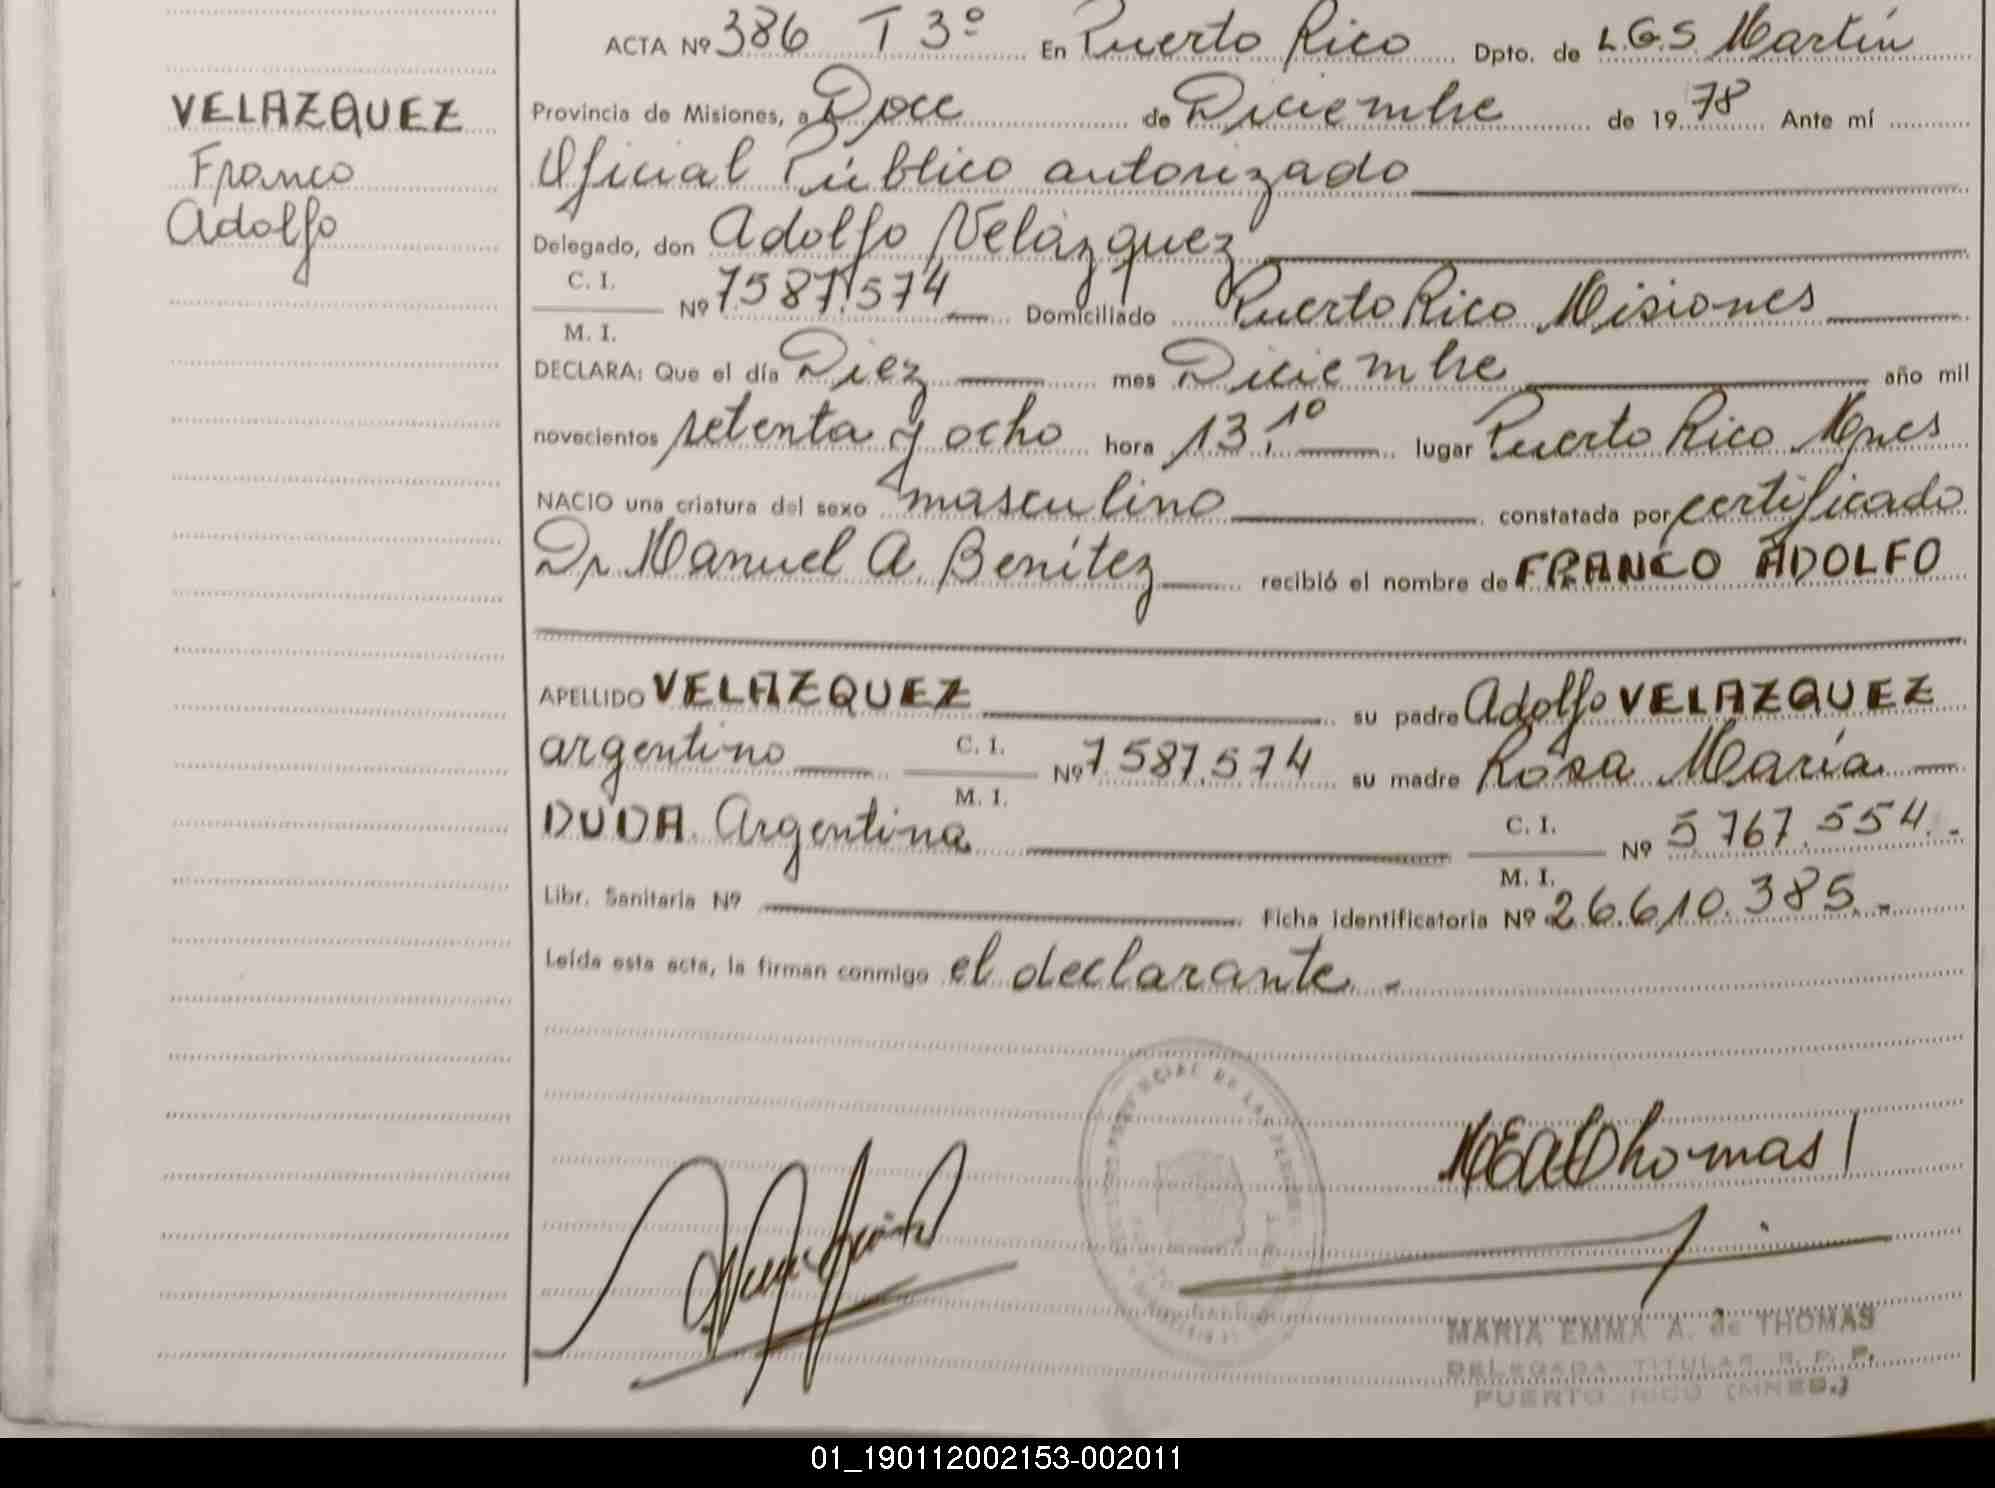 ACTA Nº 386 T 3º En Puerto Rico Dpto. de L.G.S. Martín
VELAZQUEZ
Franco
Adolfo
Provincia de Misiones, a Doce de Diciembre de 1978 Ante mí
Oficial Público autorizado
Delegado, don Adolfo Velázquez
C. I.
M. I.
Nº 7.587.574 Domiciliado Puerto Rico Misiones
DECLARA: Que el día Diez mes Diciembre año mil
novecientos setenta y ocho hora 13,10 lugar Puerto Rico Mnes
NACIO una criatura del sexo masculino constatada por certificado
Dr Manuel A. Benítez recibió el nombre de FRANCO ADOLFO
APELLIDO VELAZQUEZ su padre Adolfo VELAZQUEZ
argentino C. I. M. I. Nº 7.587.574 su madre Rosa María
DUDA Argentina C. I. M. I. Nº 5.767.554.-
Libr. Sanitaria Nº Ficha identificatoria Nº 26.610.385.-
Leída esta acta, la firman conmigo el declarante.-
MEAdThomas
MARIA EMMA A. de THOMAS
DELEGADA TITULAR R. P. P.
PUERTO RICO (MNES.)
01_190112002153-002011